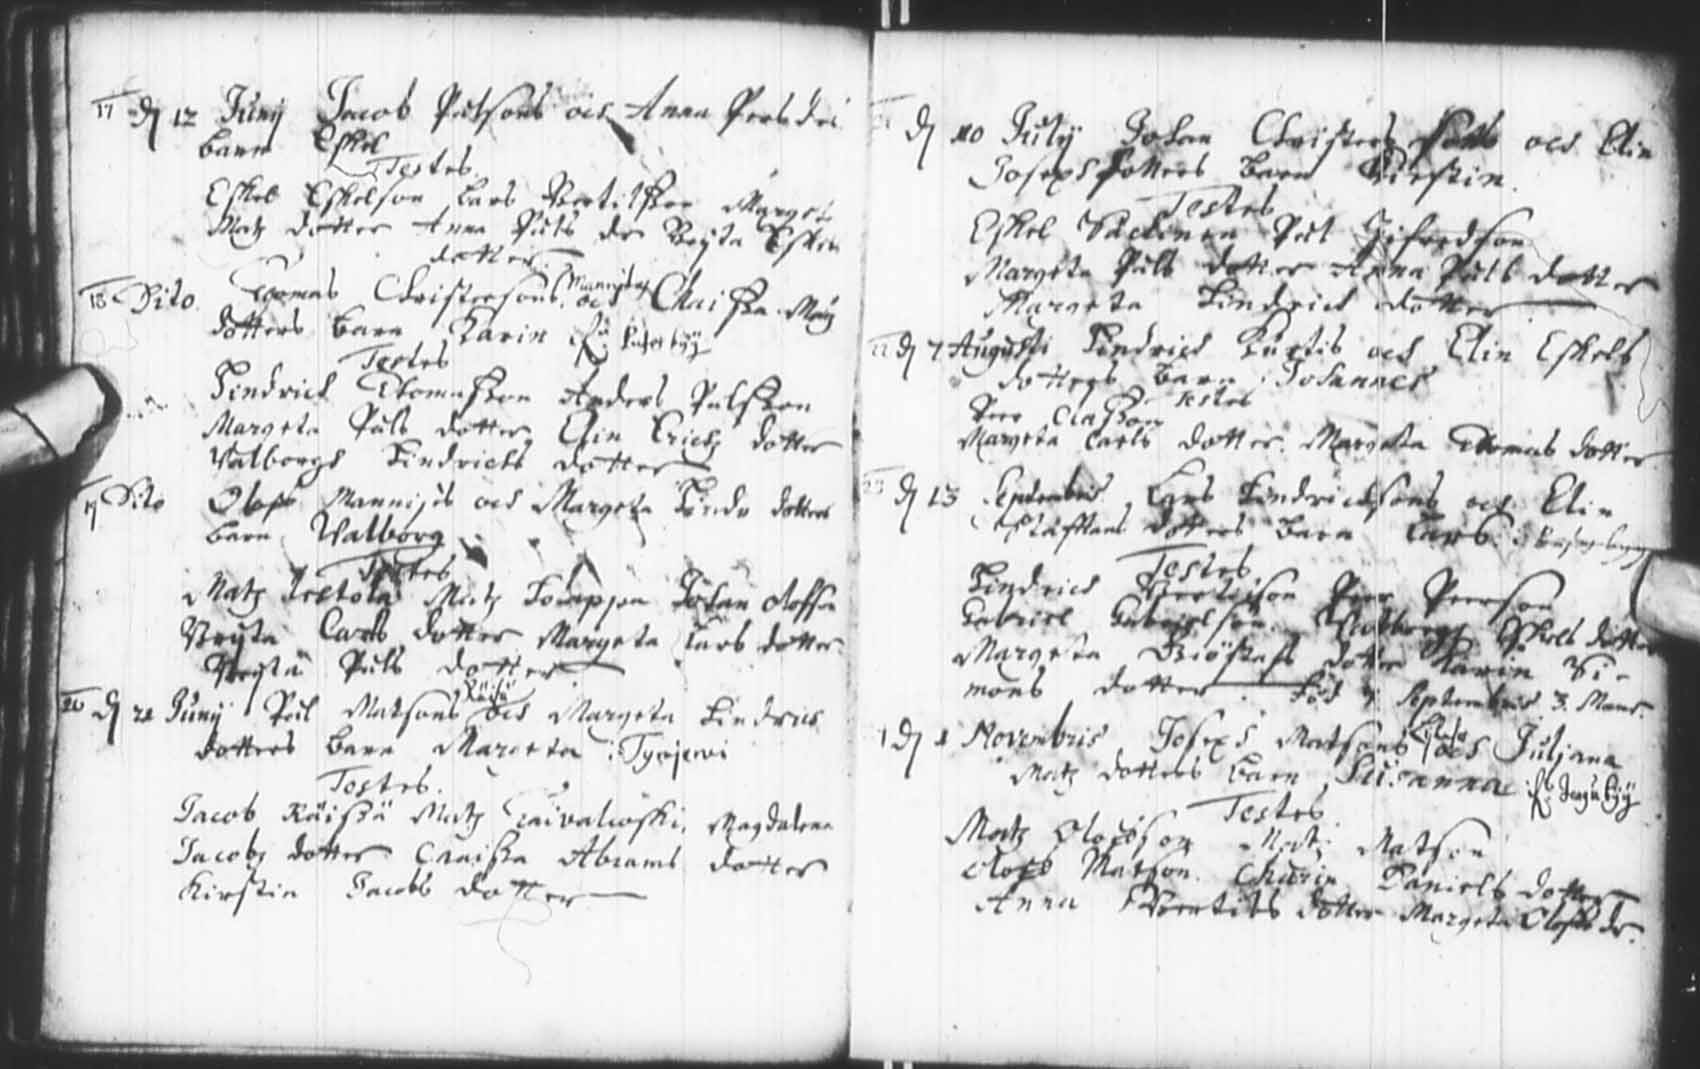 17 dÿ 12 Junij Jacob Pålsons och Anna Pers dr
barn Eskel
Testes
Eskel Eskelson Lars Bertilsson Marget
Matz dotter Anna Påls dr Bryta Eskels
dotter
18 Dito Thomas Christersons och Chaissa Matz
dotters barn Karin
Testes
Hindrich Thomasson Anders Pålsson
Margeta Påls dotter Elin Erichz dotter
Valborgh Hindrichs dotter
19 Dito Oloff Mannises och Margeta Hindr dotters
barn Walborg
Testes
Matz Matz Johan Olofson
Bryta Carls dotter Margeta Lars dotter
Bryta Påls dotter
20 dÿ 24 Junij Pål Matsons Räisä och Margeta Hindrics
dotters barn Margeta : Tyrjerwi
Testes.
Jacob Räissä Matz Magdalena
Jacobz dotter Chaissa Abrams dotter
Kirstin Jacobs dotter
dÿ 10 Julij Johan Christers sons och Elin
Josephs dotters barn Kirstin.
Testes
Eskel Pål
Margeta Påls dotter Anna Påls dotter
Margeta Hindrich dotter
22 dÿ 7 Augusti Hindrich Kurtis och Elin Eskels
dotters barn Johannes
Testes
Per Classon
Margeta Carls dotter. Margeta Thomas dotter
23 dÿ 13 Septembris Lars Hindrichsons och Elin
Staffans dotters barn Lars
Testes
Hindrich Bertilson Peer Peerson
Gabriel Gabrielson Walborg Eskels dotter
Margeta dotter Karin Si-
mons dotter föd Septembris
dÿ 1 Novembris Joseph Matsons och Juliana
Matz dotters barn Susanna
Testes
Matz Olofson Matz Matson
Olof Matson. Karin Daniels dotter
Anna Bertils dotter Margeta Olofs dr.